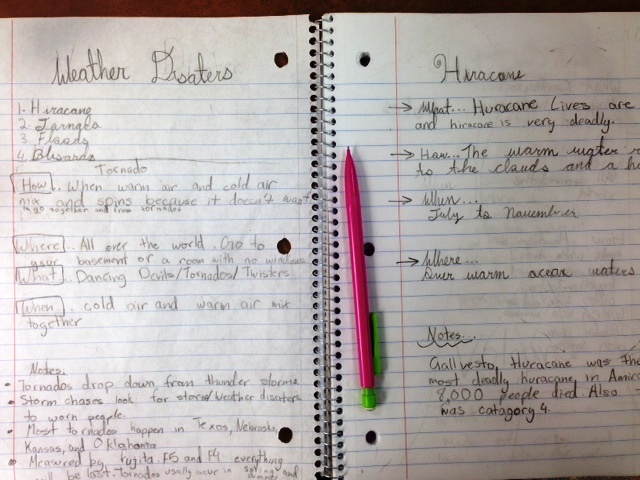 Weather Disaters
1. Hiracane
2. Tornado
3 Floods
4. Blizards
Tornado
How. When warm air and cold air
mix and spins because it doesn't want
to go together and from tornados
Where... All over the world. Go to
your basement or a room with no windows
What. Dancing Devils/Tornados/Twisters
When. cold air and warm air mix
together
Notes.
• Tornados drop down from thunder storms
• Storm chases look for storms/weather disaters
to worn people.
• Most tornados happen in Texos, Nebraska,
Kansas, and Oklahanta
• Measured by Fujita. F5 and F4 everything
will be lost. Tornados usally acur in spring and
summer
Hiracane
→ What... Huracane Lives are
and hiracane is very deadly.
→ How... The warm water
to the clouds and a
→ When...
July to November
→ Where...
Over warm ocean waters
Notes.
Gallvesto, Huracane was the
most deadly huracane in
8,000 people died. Also
was catagory 4.